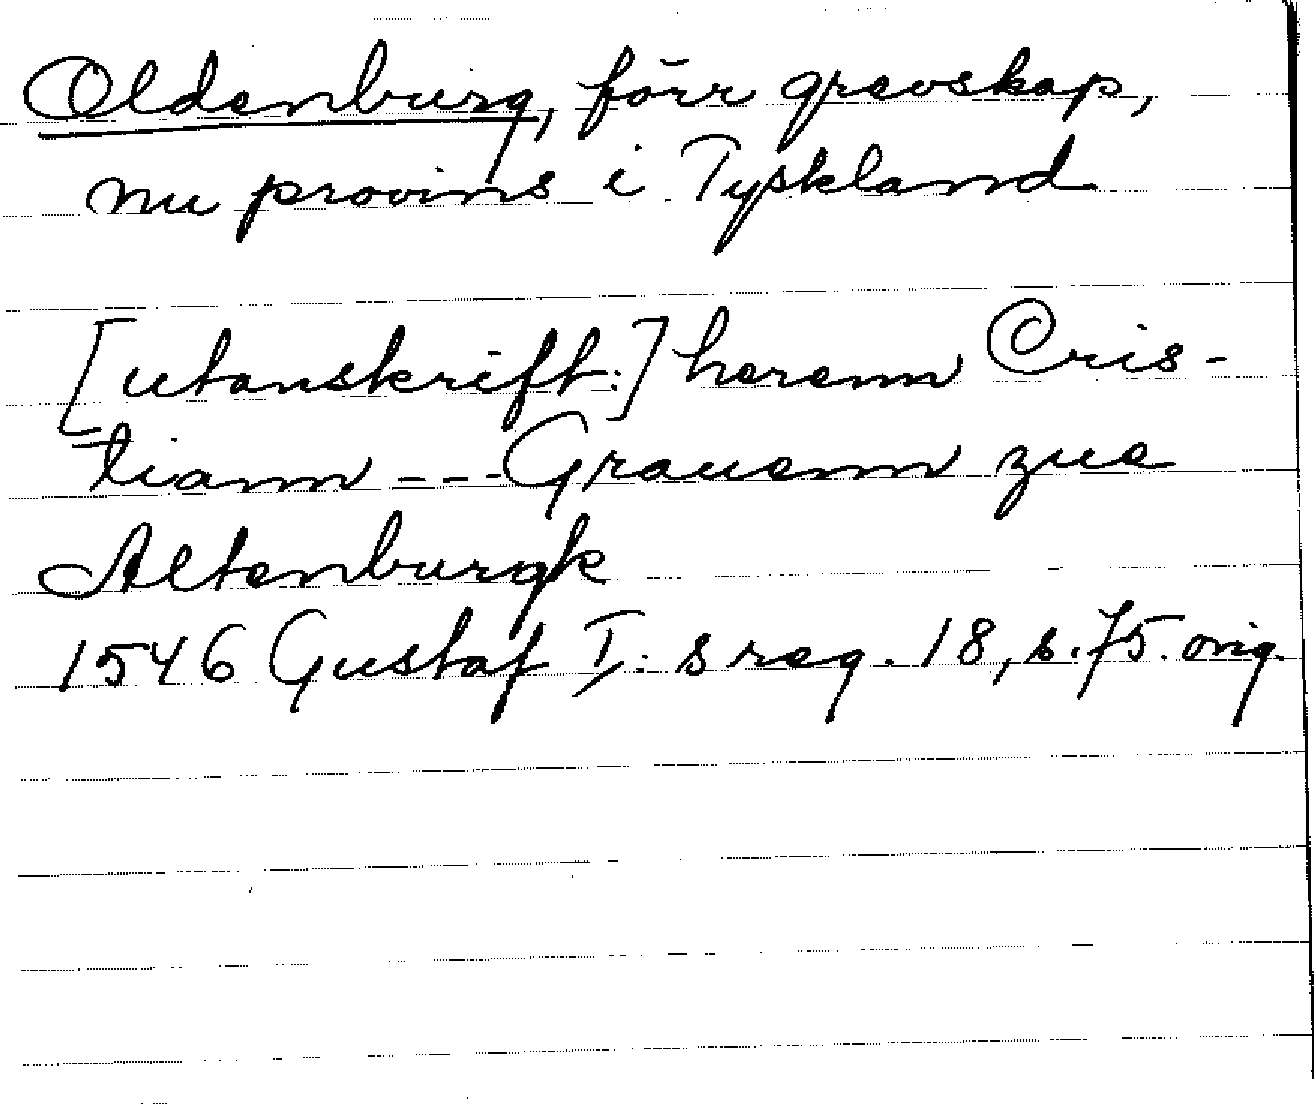 Oldenburg, förr grevskap,
nu provins i Tyskland
[utanskrift:] herenn Cris-
tiann --- Grauenn zue
Altenburgk
1546 Gustaf I:s reg. 18, s. 75. orig.